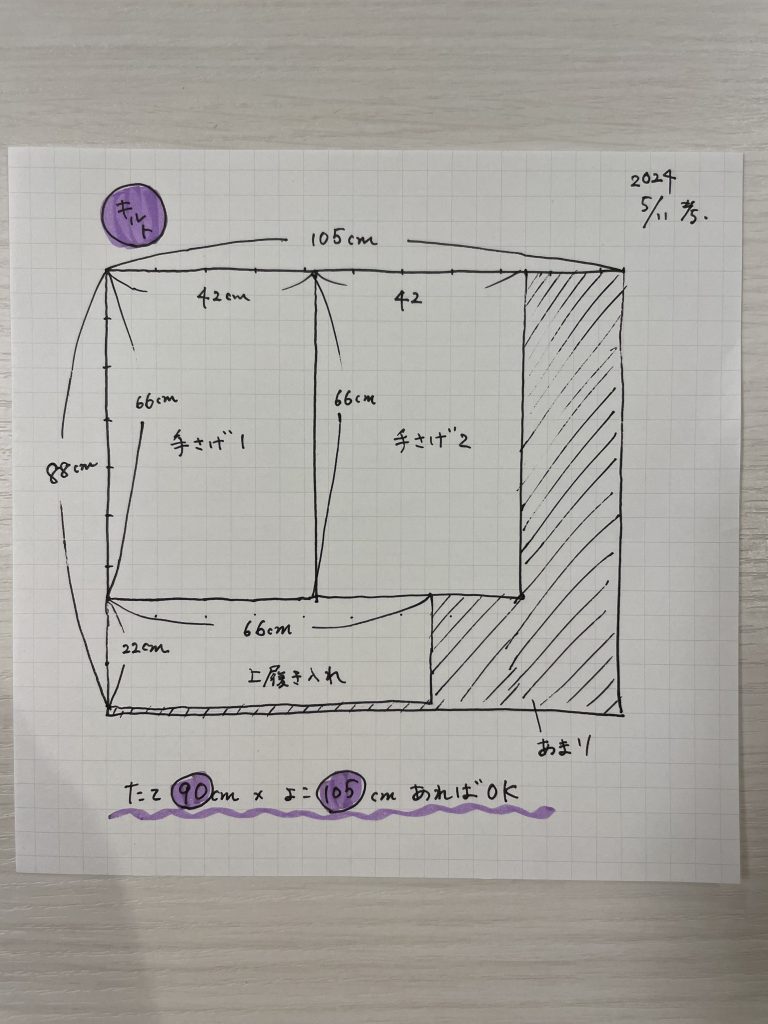 2024
5/11
キルト
105cm
42cm
42
66cm
66cm
手さげ1
手さげ2
88cm
66cm
22cm
上履き入れ
あまり
たて 90cm × よこ 105 cm あればOK